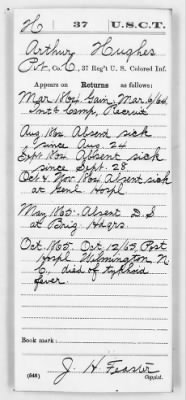 H 37 U.S.C.T.
Arthur Hughes
Pvt., Co. C, 37 Reg't U. S. Colored Inf.
Appears on Returns as follows:
Mar. 1864. Gain, Mar. 6/64.
Camp, Recruit
Aug. 1864. Absent sick
since Aug. 24
Sept. 1864. Absent sick
since Sept. 28
Oct & Nov. 1864. Absent sick
at Genl. Hospl.
May 1865. Absent D. S.
at Brig. Hdqrs
Oct. 1865. Oct. 12/65, Post
Hospl Wilmington N.
C. died of typhoid
fever.
Book mark:
J. H. Feaster
(546) Copyist.